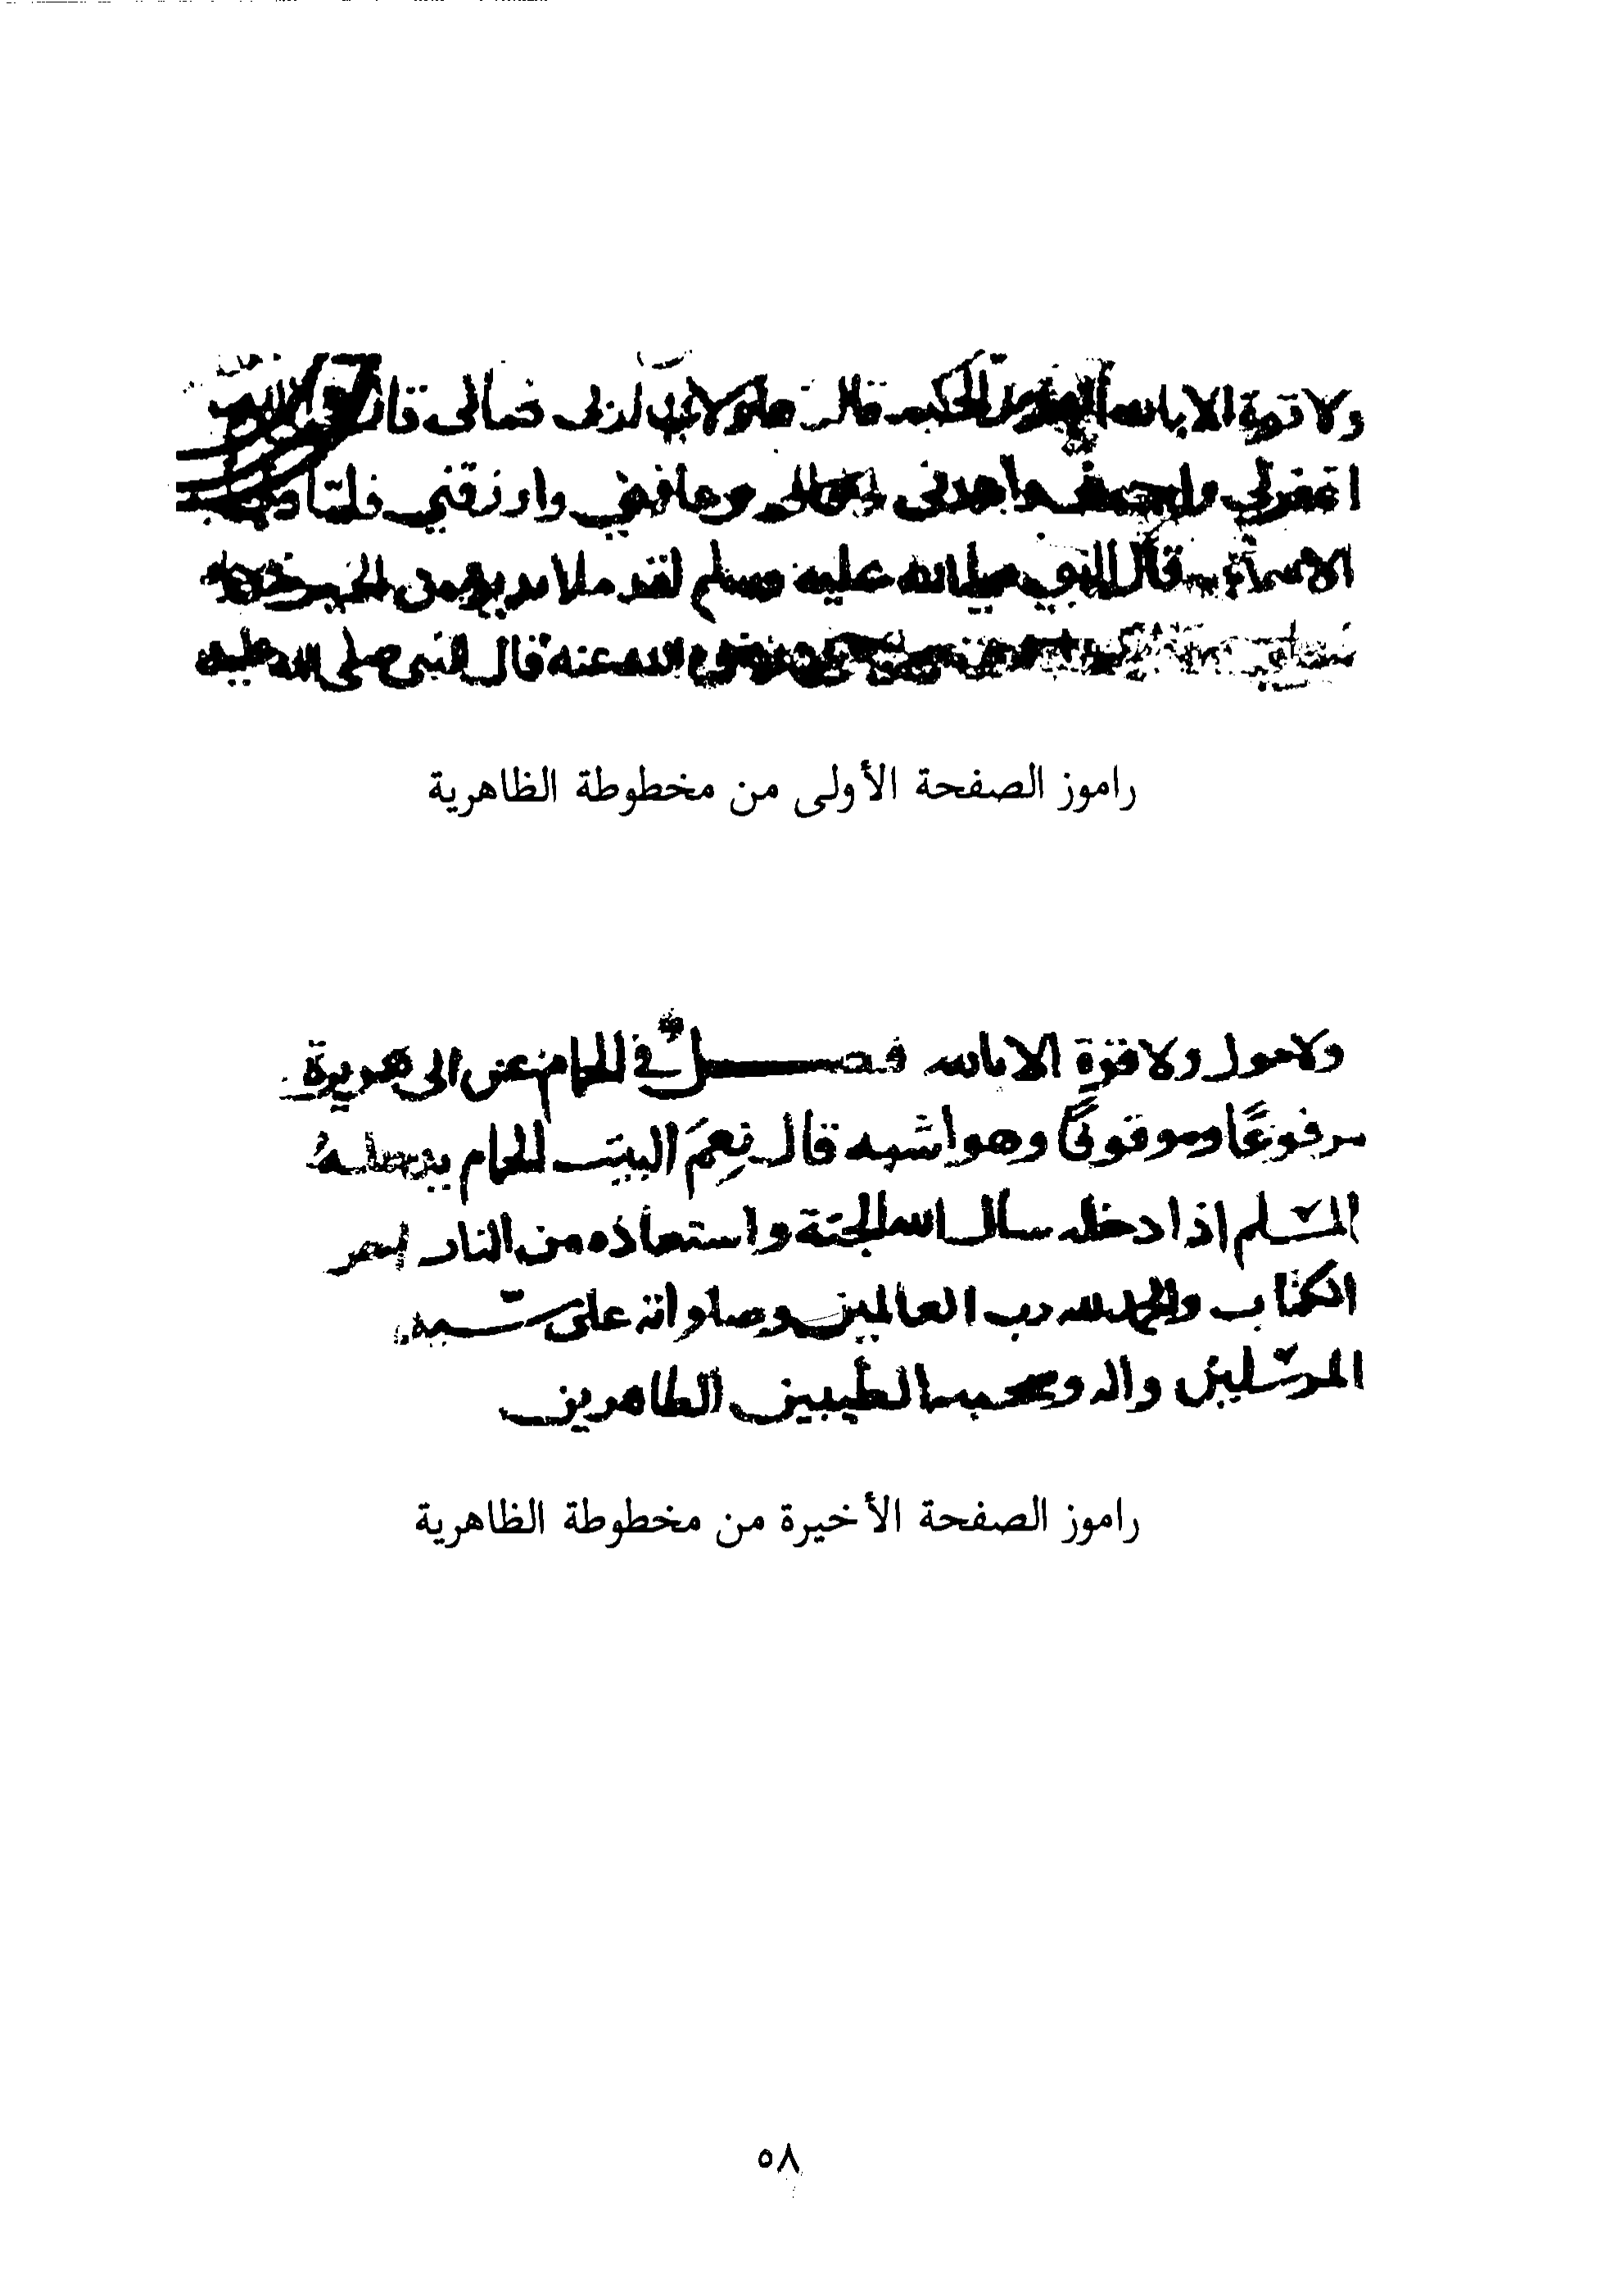 ولا قوة الا بالله الحكيم قال لربى فمالى قال
اغفرلي واهدنى وعافني وارزقني فلما
قال النبي صلى الله عليه وسلم لقد ملا يديه من الخير
الله عنه قال النبى صلى الله عليه
راموز الصفحة الأولى من مخطوطة الظاهرية
ولا حول ولا قوة الا بالله فصل في الحمام عن ابى هريرة
مرفوعًا وموقوفًا وهو اشبه قال نِعمَ البيت الحمام يدخلهُ
المسلم اذا دخله سال الله الجنة واستعاذه من النار اخر
الكتاب والحمد لله رب العالمين وصلواته على سيد
المرسلين واله وصحبه الطيبين الطاهرين
راموز الصفحة الأخيرة من مخطوطة الظاهرية
٥٨